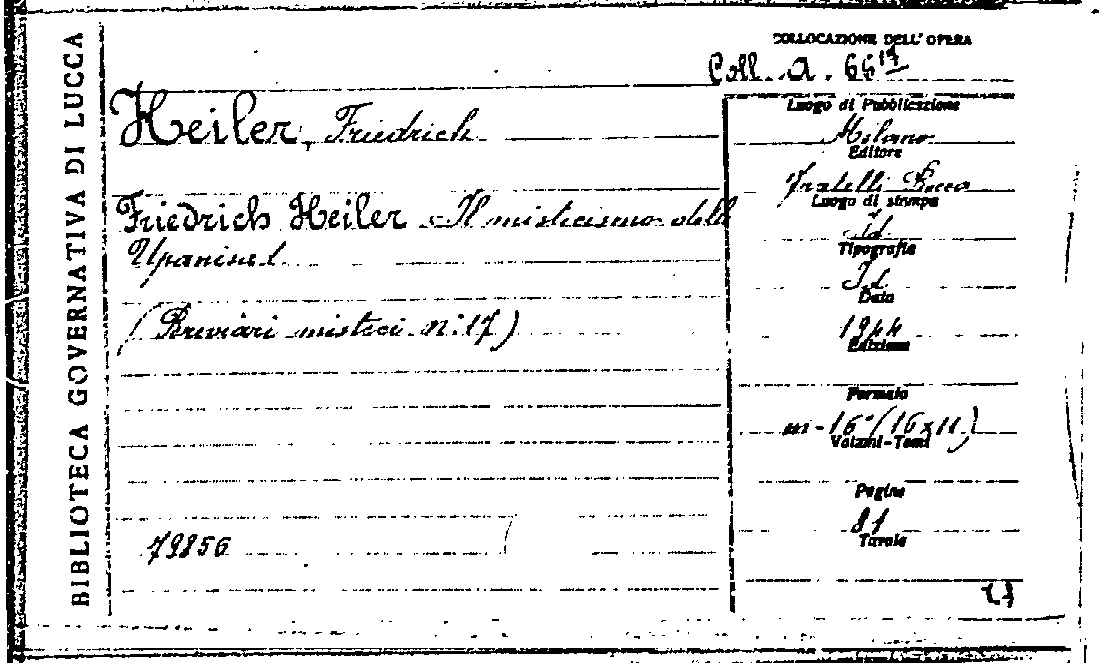 BIBLIOTECA GOVERNATIVA DI LUCCA
COLLOCAZIONE DELL'OPERA
Coll. A. 66 17
Heiler, Friedrich
Friedrich Heiler - Il misticismo delle
Upanised.
(Breviari mistici n. 17)
79856
Luogo di Pubblicazione
Milano
Editore
Fratelli Bocca
Luogo di stampa
Id
Tipografia
Id
Data
1944
Edizione
Formato
in-16° (16x11)
Volumi-Tomi
Pagine
81
Tavole